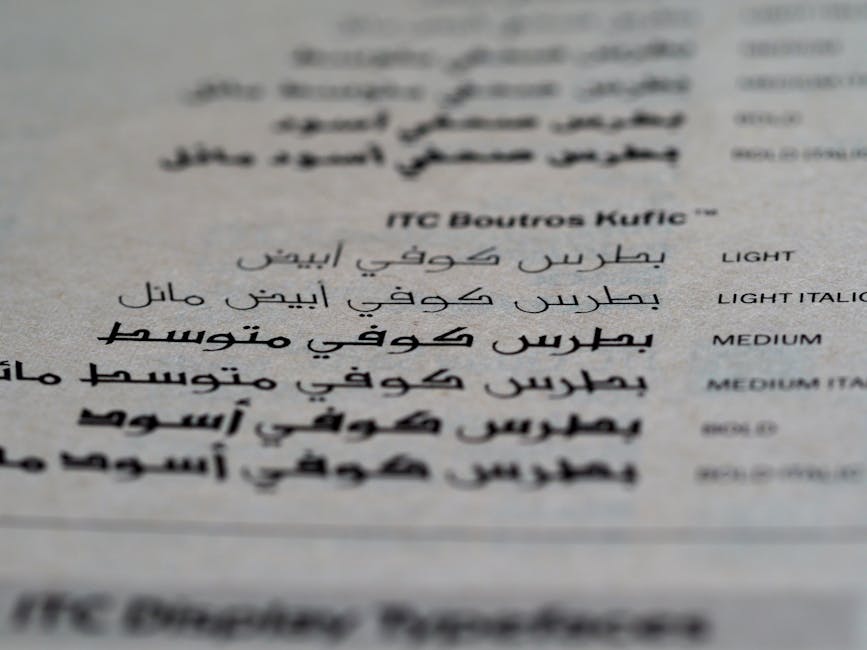 بطرس صحفي متوسط MEDIUM
بطرس صحفي متوسط مائل MEDIUM
بطرس صحفي أسود BOLD
بطرس صحفي أسود مائل BOLD ITALIC
ITC Boutros Kufic™
بطرس كوفي أبيض LIGHT
بطرس كوفي أبيض مائل LIGHT ITALIC
بطرس كوفي متوسط MEDIUM
بطرس كوفي متوسط مائل MEDIUM ITA
بطرس كوفي أسود BOLD
بطرس كوفي أسود BOLD ITALIC
ITC Display Typefaces